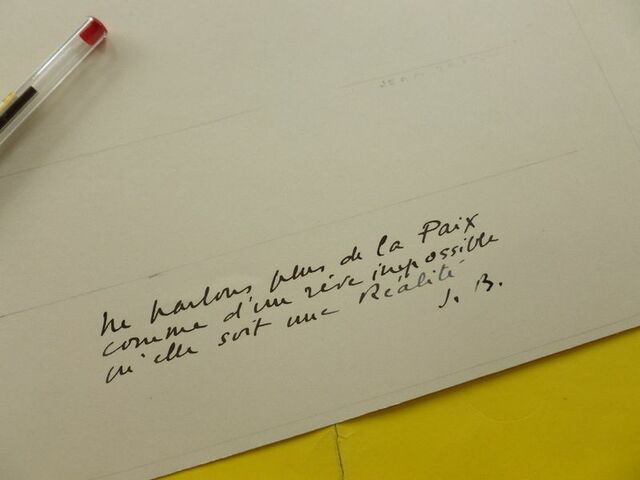 Ne parlons plus de la Paix
comme d'un rêve impossible
qu'elle soit une Réalité
J. B.